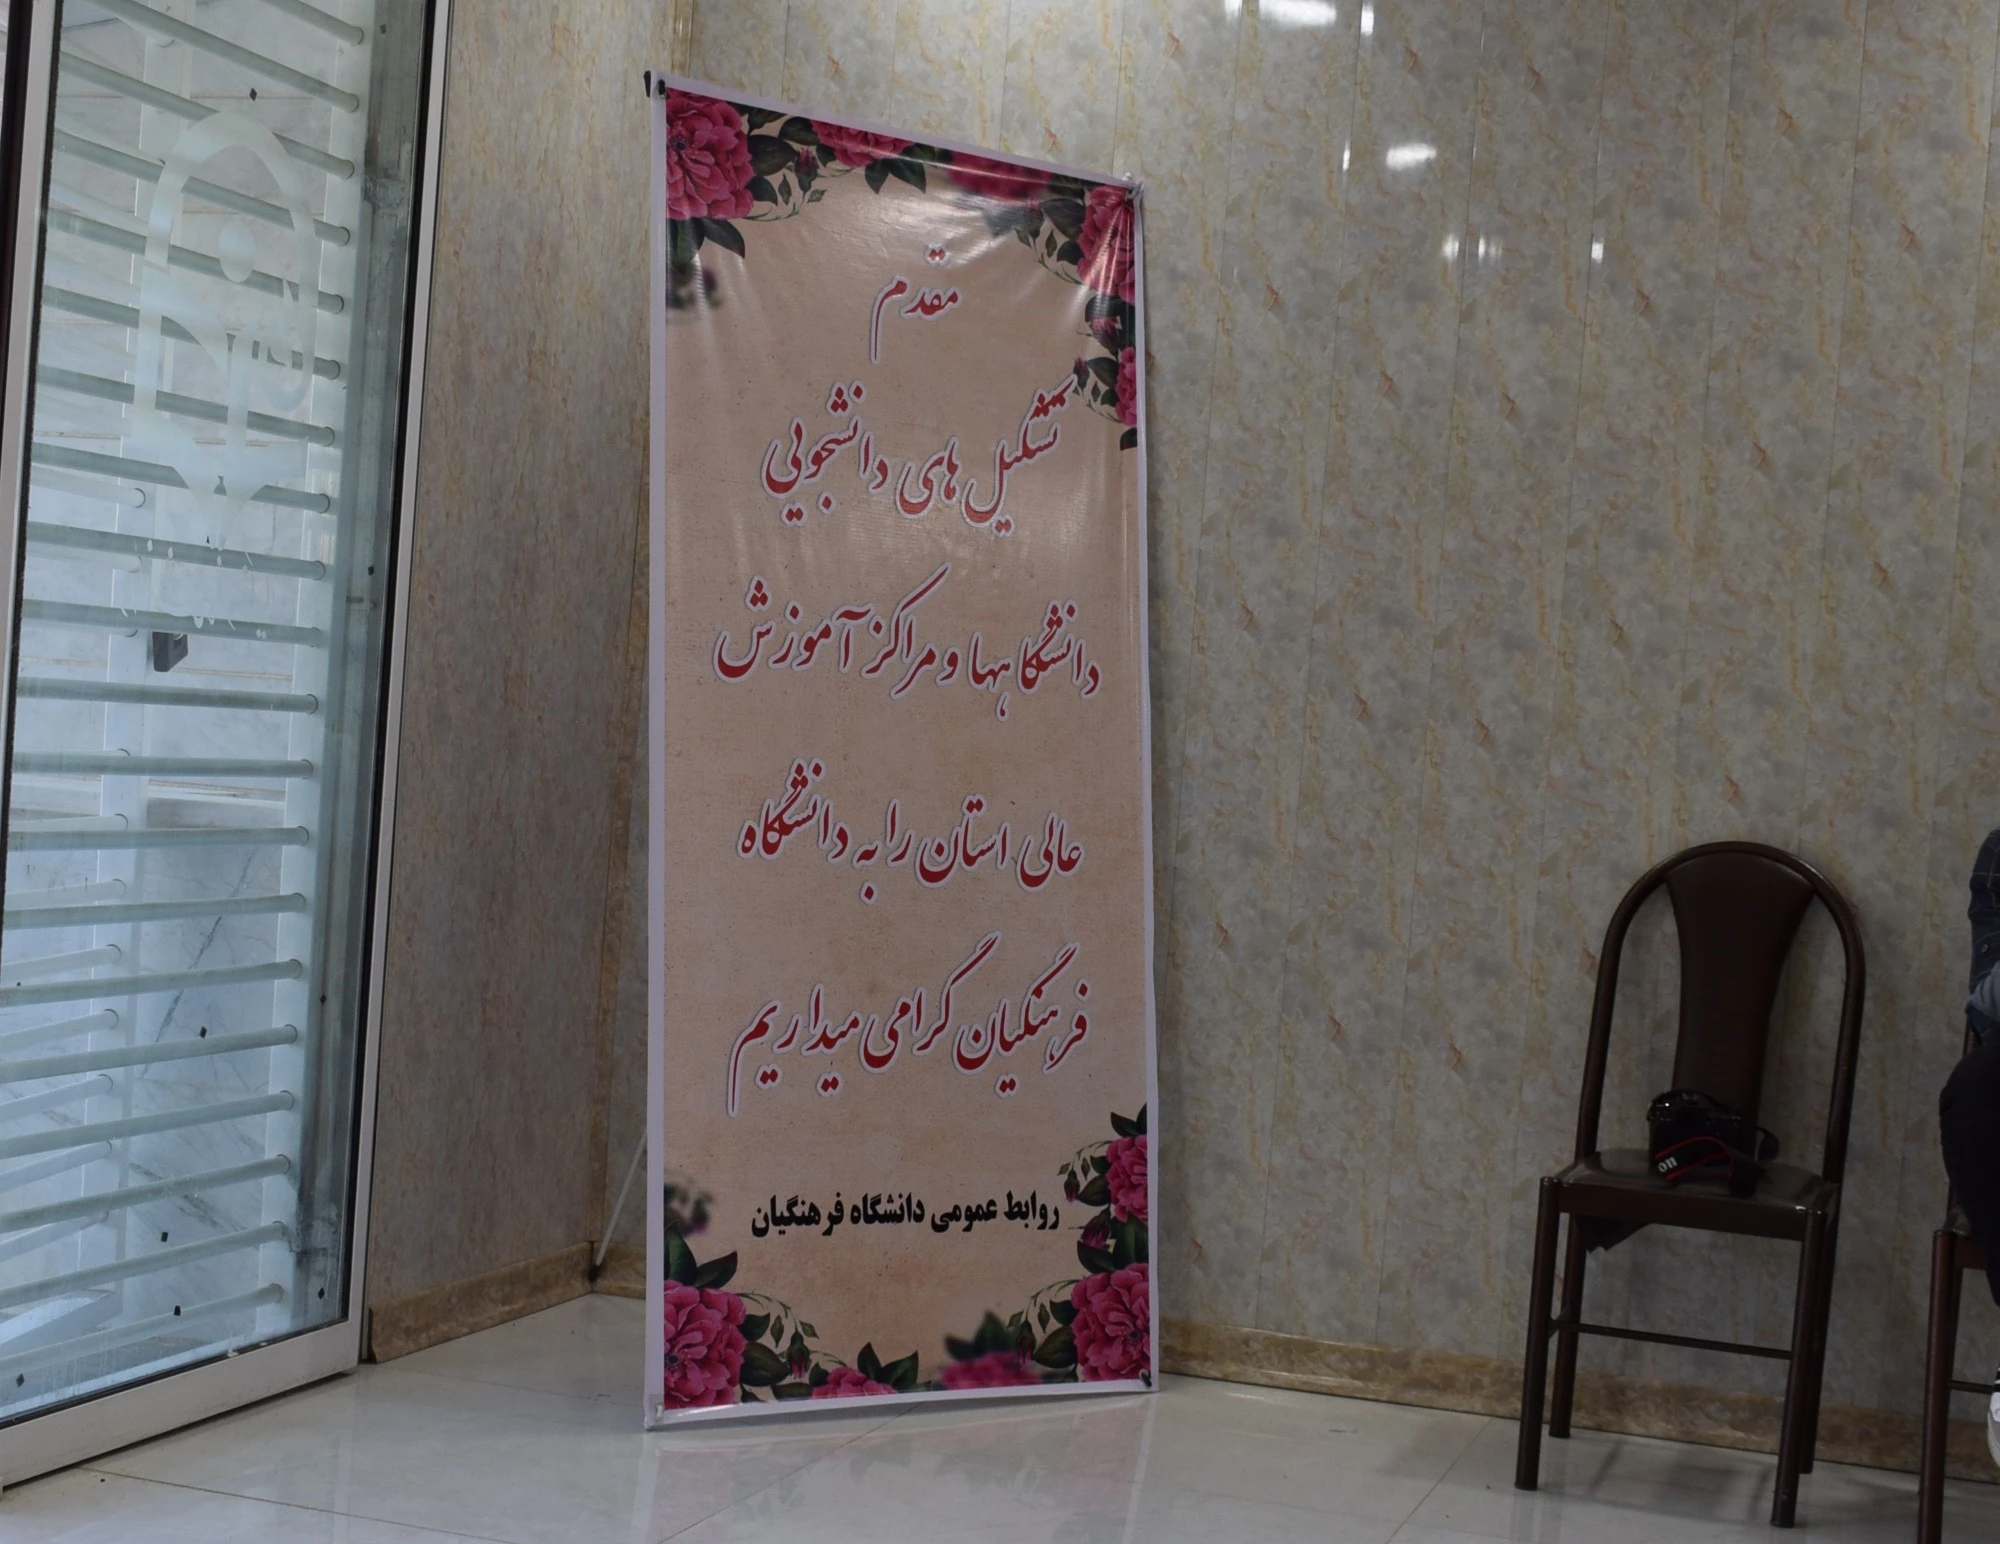 مقدم
تشکیل های دانشجویی
دانشگاهها و مراکز آموزش
عالی استان را به دانشگاه
فرهنگیان گرامی میداریم
روابط عمومی دانشگاه فرهنگیان
on